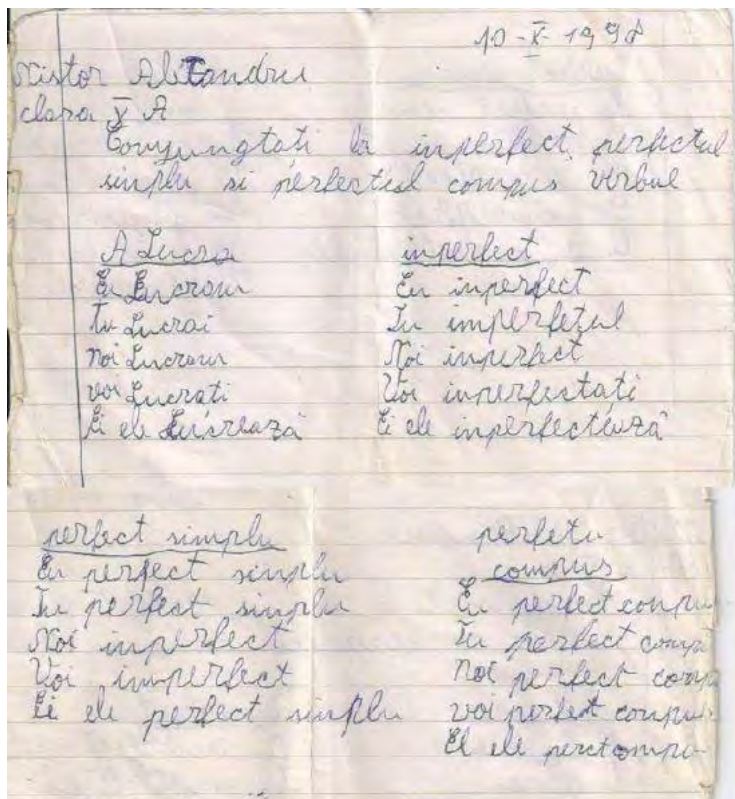 10-X-1998
Nistor Alexandru
clasa X A
Conjungtati la inperfect, perfectul
simplu si perfectul compus verbul
A Lucra
Eu Lucram
Tu Lucrai
Noi Lucram
voi Lucrati
Ei ele Lucrează
inperfect
Eu inperfect
Tu imperfetul
Noi inperfect
Voi inperfectati
Ei ele inperfectează
perfect simplu
Eu perfect simplu
Tu perfect simplu
Noi inperfect
Voi imperfect
Ei ele perfect simplu
perfetu
compus
Eu perfect conpu
Tu perfect comp
Noi perfect comp
voi perfect conpu
El ele perctompu